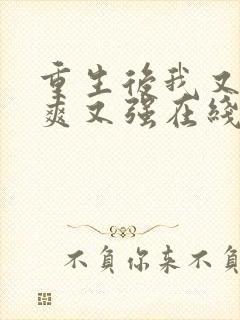 重生後我又
爽又强在綫
不負你来不負